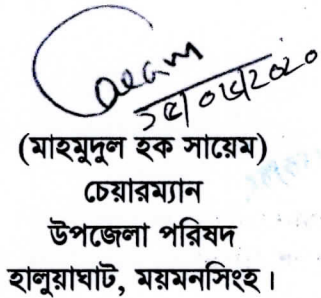 (মাহমুদুল হক সায়েম)
চেয়ারম্যান
উপজেলা পরিষদ
হালুয়াঘাট, ময়মনসিংহ।